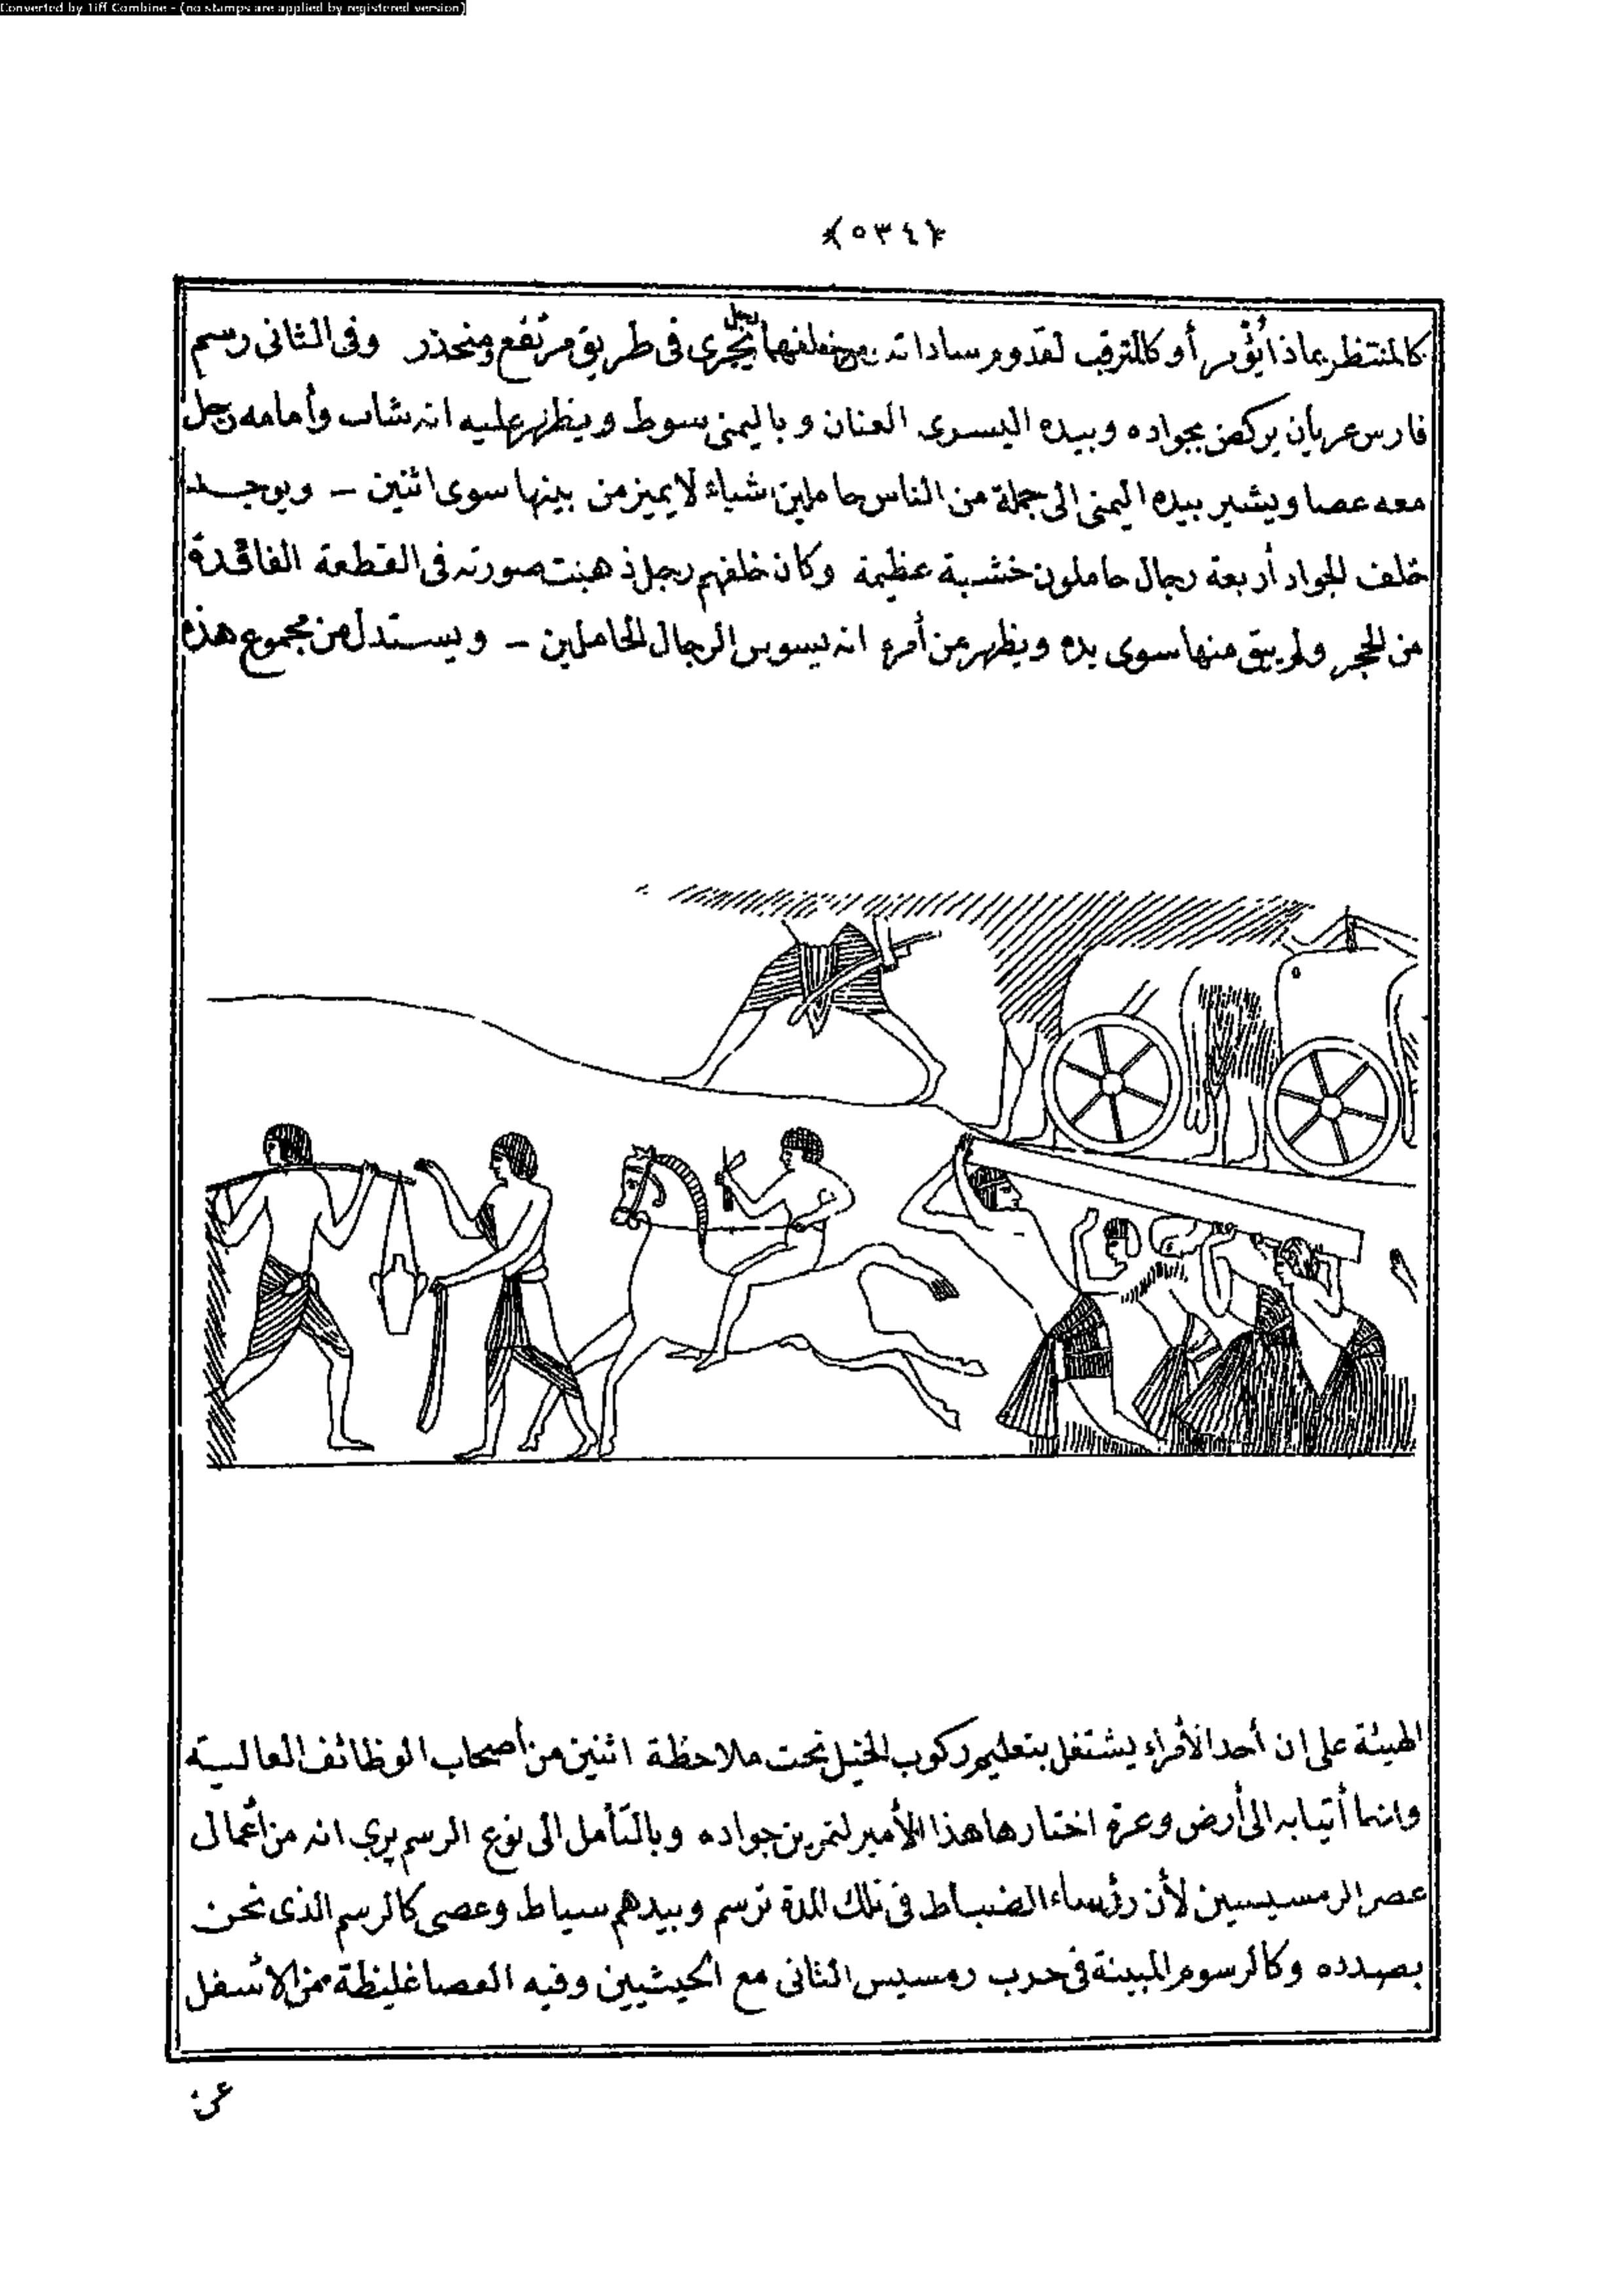 Converted by Tiff Combine - (no stamps are applied by registered version)
﴿٥٣٤﴾
كالمنتظر بماذا يؤمر أو كالمترقب لقدوم ساداته ومن خلفها رجل يجرى فى طريق مرتفع ومنحدر وفى الثانى رسم
فارس عريان يركض بجواده وبيده اليسرى العنان وباليمنى سوط ويظهر عليه انه شاب وأمامه رجل
معه عصا ويشير بيده اليمنى الى جملة من الناس حاملين اشياء لا يميز من بينها سوى اثنين – ويوجد
خلف الجواد أربعة رجال حاملون خشبة عظيمة وكان خلفهم رجل ذهبت صورته فى القطعة الفاقدة
من الحجر ولم يبق منها سوى يده ويظهر من أمره انه يسوس الرجال الحاملين – ويستدل من مجموع هذه
الهيئة على ان أحد الأمراء يشتغل بتعليم ركوب الخيل تحت ملاحظة اثنين من أصحاب الوظائف العالية
وانهما أتيا به الى أرض وعرة اختارها هذا الأمير لتمرين جواده وبالتأمل الى نوع الرسم يرى انه من أعمال
عصر الرمسيسين لأن رؤساء الضباط فى تلك المدة ترسم وبيدهم سياط وعصى كالرسم الذى نحن
بصدده وكالرسوم المبينة فى حرب رمسيس الثانى مع الحيثيين وفيه العصا غليظة من الأسفل
عن